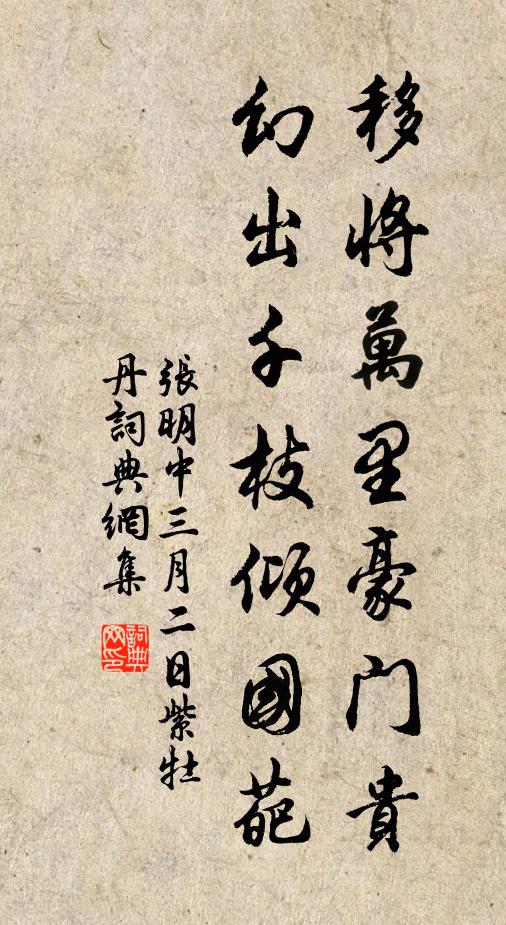 移將萬里豪門貴
幻出千枝傾國葩
張明中三月二日紫牡
丹詞典網集
詞典网印